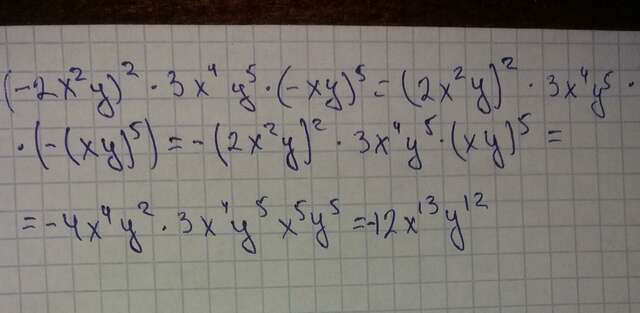 (-2x²y)² · 3x⁴y⁵ · (-xy)⁵ = (2x²y)² · 3x⁴y⁵ ·
· (-(xy)⁵) = -(2x²y)² · 3x⁴y⁵ · (xy)⁵ =
= -4x⁴y² · 3x⁴y⁵ x⁵y⁵ = -12x¹³y¹²